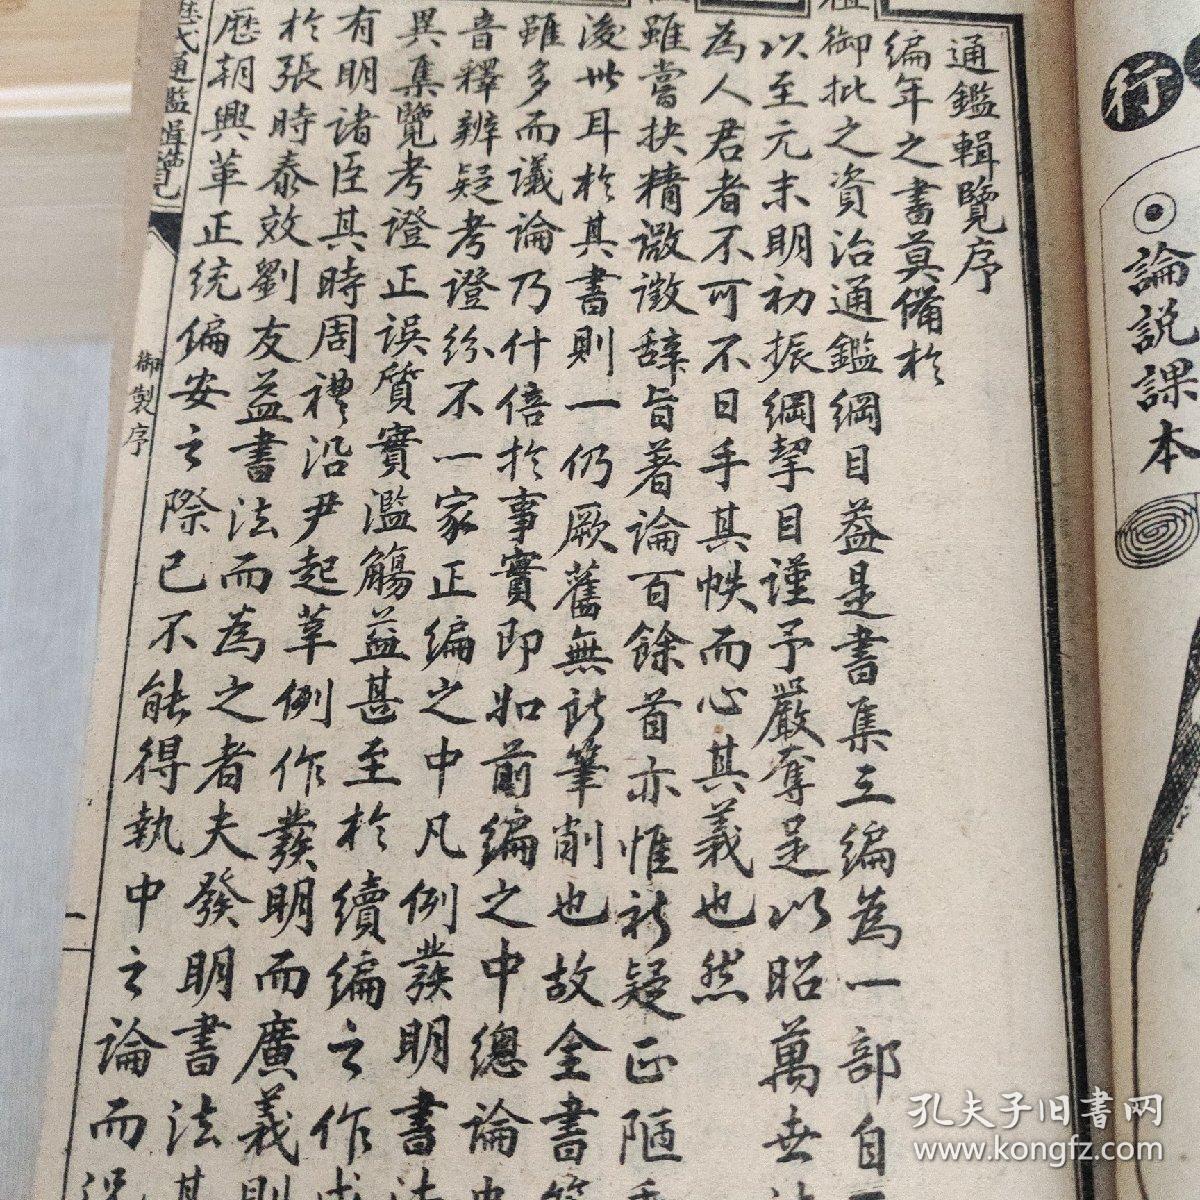 通鑑輯覽序
編年之書莫備於
祖御批之資治通鑑綱目葢是書集三編為一部自
以至元末明初振綱挈目謹予嚴奪足以昭萬世法
為人君者不可不日手其帙而心其義也然
雖嘗抉精微徵辭旨著論百餘首亦惟析疑正陋垂
後世耳於其書則一仍厥舊無所筆削也故全書
雖多而議論乃什倍於事實即如前編之中總論
音釋辨疑考證紛不一家正編之中凡例發明書法
異集覽考證正誤質實濫觴益甚至於續編之作
有明諸臣其時周禮沿尹起莘例作發明而廣義則
於張時泰效劉友益書法而為之者夫發明書法其
歷朝興革正統偏安之際已不能得執中之論而況
氏通鑑輯覽
御製序
一
行
論説課本
孔夫子旧书网
www.kongfz.com